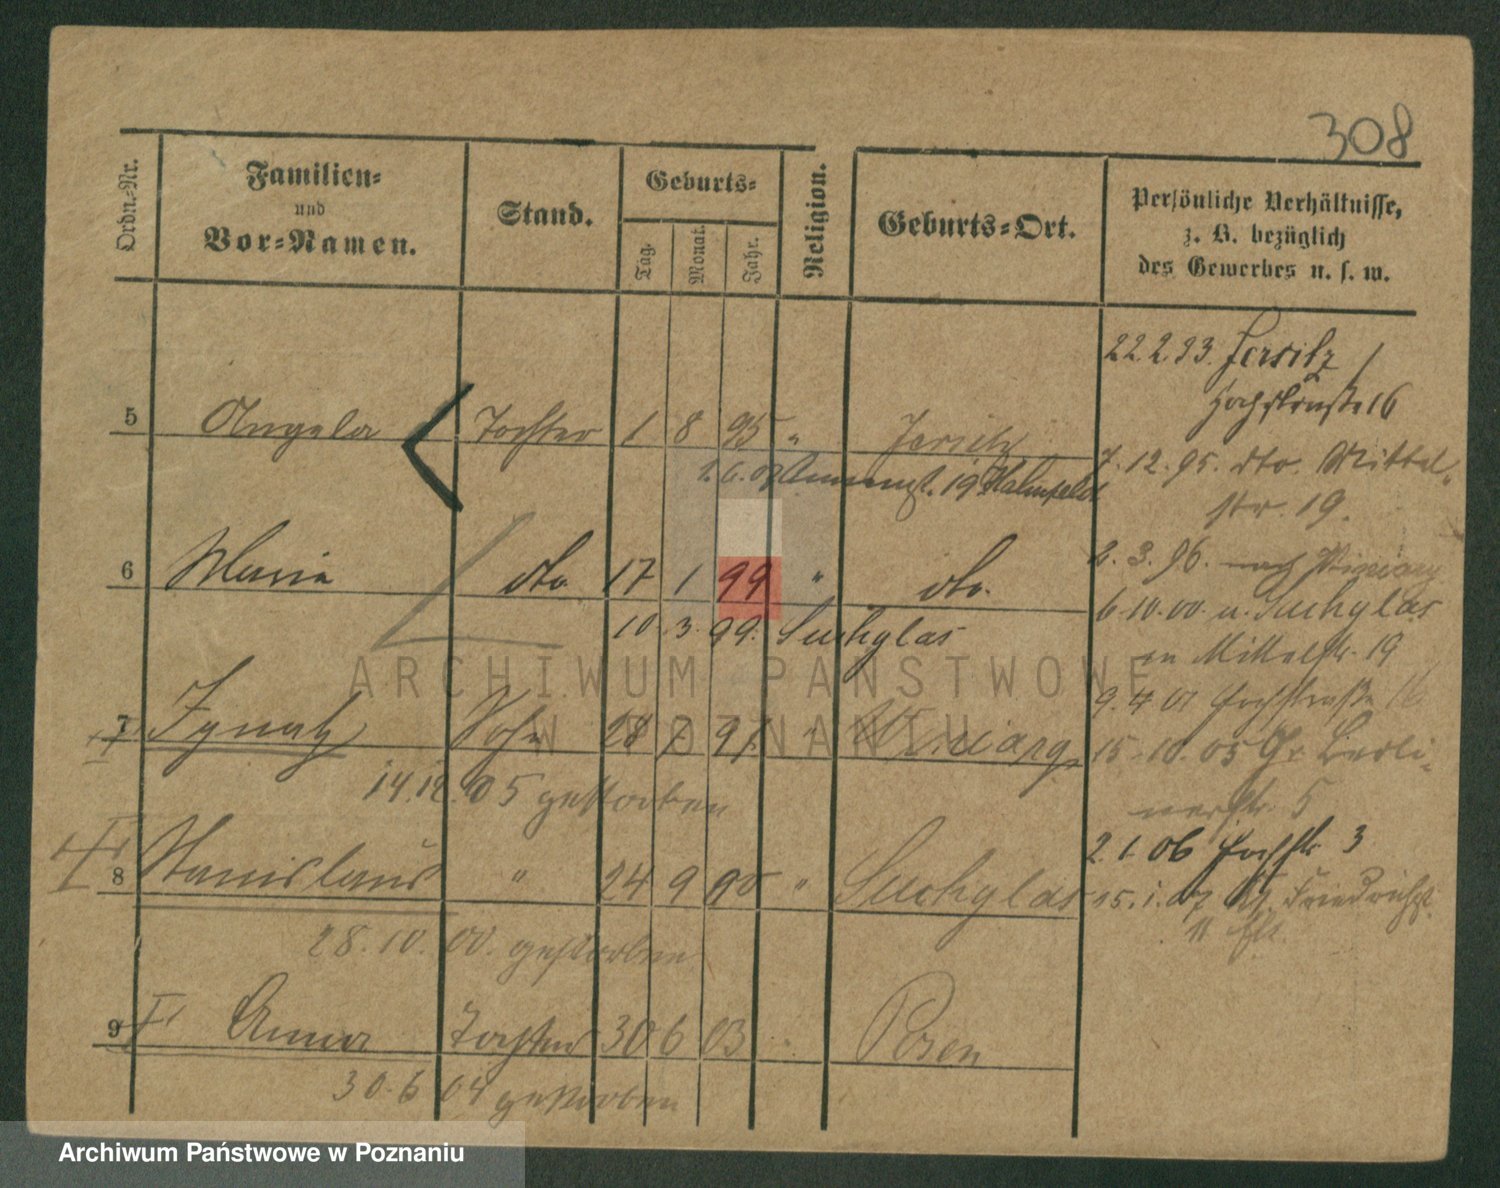 308
Ordn.-Nr.
Familien-
und
Vor-Namen.
Stand.
Geburts-
Tag.
Monat.
Jahr.
Religion.
Geburts-Ort.
Persönliche Verhältnisse,
z. B. bezüglich
des Gewerbes u. s. w.
22.2.93. Jersitz
Hochstraße 16
5 Angela Tochter 1 8 95 " Jersitz
7.12.95. dto. Mittel-
1.6.07 19
str. 19.
6 Maria dto. 17 1 99 " dto.
2.3.96. nach Winiary
10.3.99. Suchylas
6.10.00. u. Suchylas
Mittelstr. 19
9.4.01 Hochstraße 16
7 Ignatz Sohn 28 7 97 " Winiary
15.10.05 Gr. Berli-
nerstr. 5
14.12.05 gestorben
2.1.06 Hochstr. 3
8 Stanislaus " 24 9 00 " Suchylas
15.1.07 Friedrichst.
11
28.10.00. gestorben
9 Anna Tochter 30 6 03 " Posen
30.6.04 gestorben
ARCHIWUM PAŃSTWOWE
W POZNANIU
Archiwum Państwowe w Poznaniu